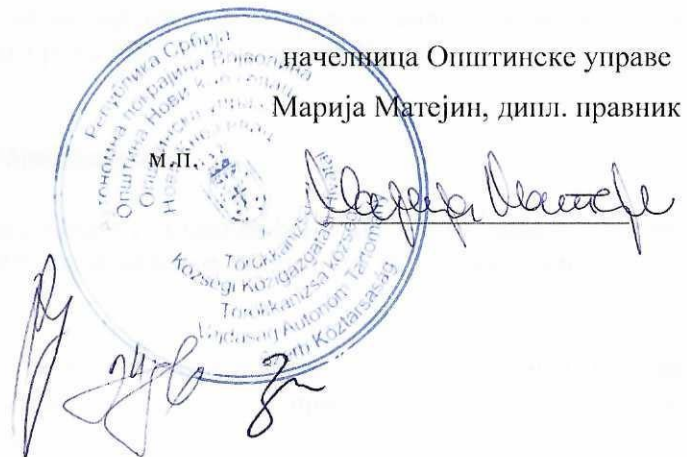 начелница Општинске управе
Марија Матејин, дипл. правник
м.п.
Марија Матејин
Република Србија
Аутономна покрајина Војводина
Општина Нови Кнежевац
Општинска управа
Нови Кнежевац
Törökkanizsa
Községi Közigazgatás
Törökkanizsa község
Vajdaság Autonóm Tartomány
Szerb Köztársaság